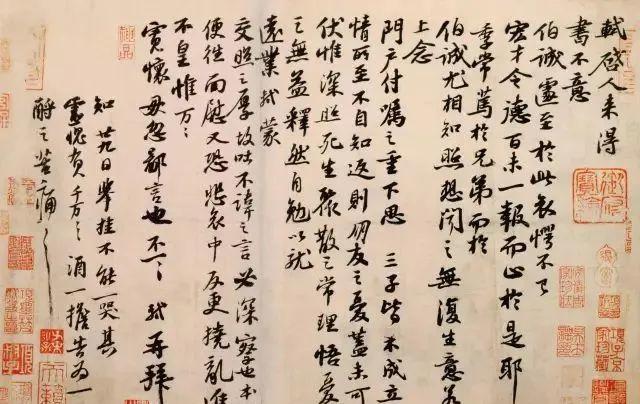 軾啓人来得
書不意
伯誠遽至於此哀愕不已
宏才令德百未一報而止於是耶
季常篤於兄弟而於
伯誠尤相知照想聞之無復生意若
上念
門户付囑之重下思 三子皆不成立
情所至不自知返則朋友之憂蓋未可
伏惟深照死生聚散之常理悟憂
之無益釋然自勉以就
遠業軾蒙
交照之厚故吐不諱之言必深察也本
便往面慰又恐悲哀中反更撓亂進
不皇惟万〻
寬懷毋忽鄙言也不一〻軾再拜
知廿九日舉挂不能一哭其
靈愧負千万〻酒一擔告為一
酹之苦痛〻